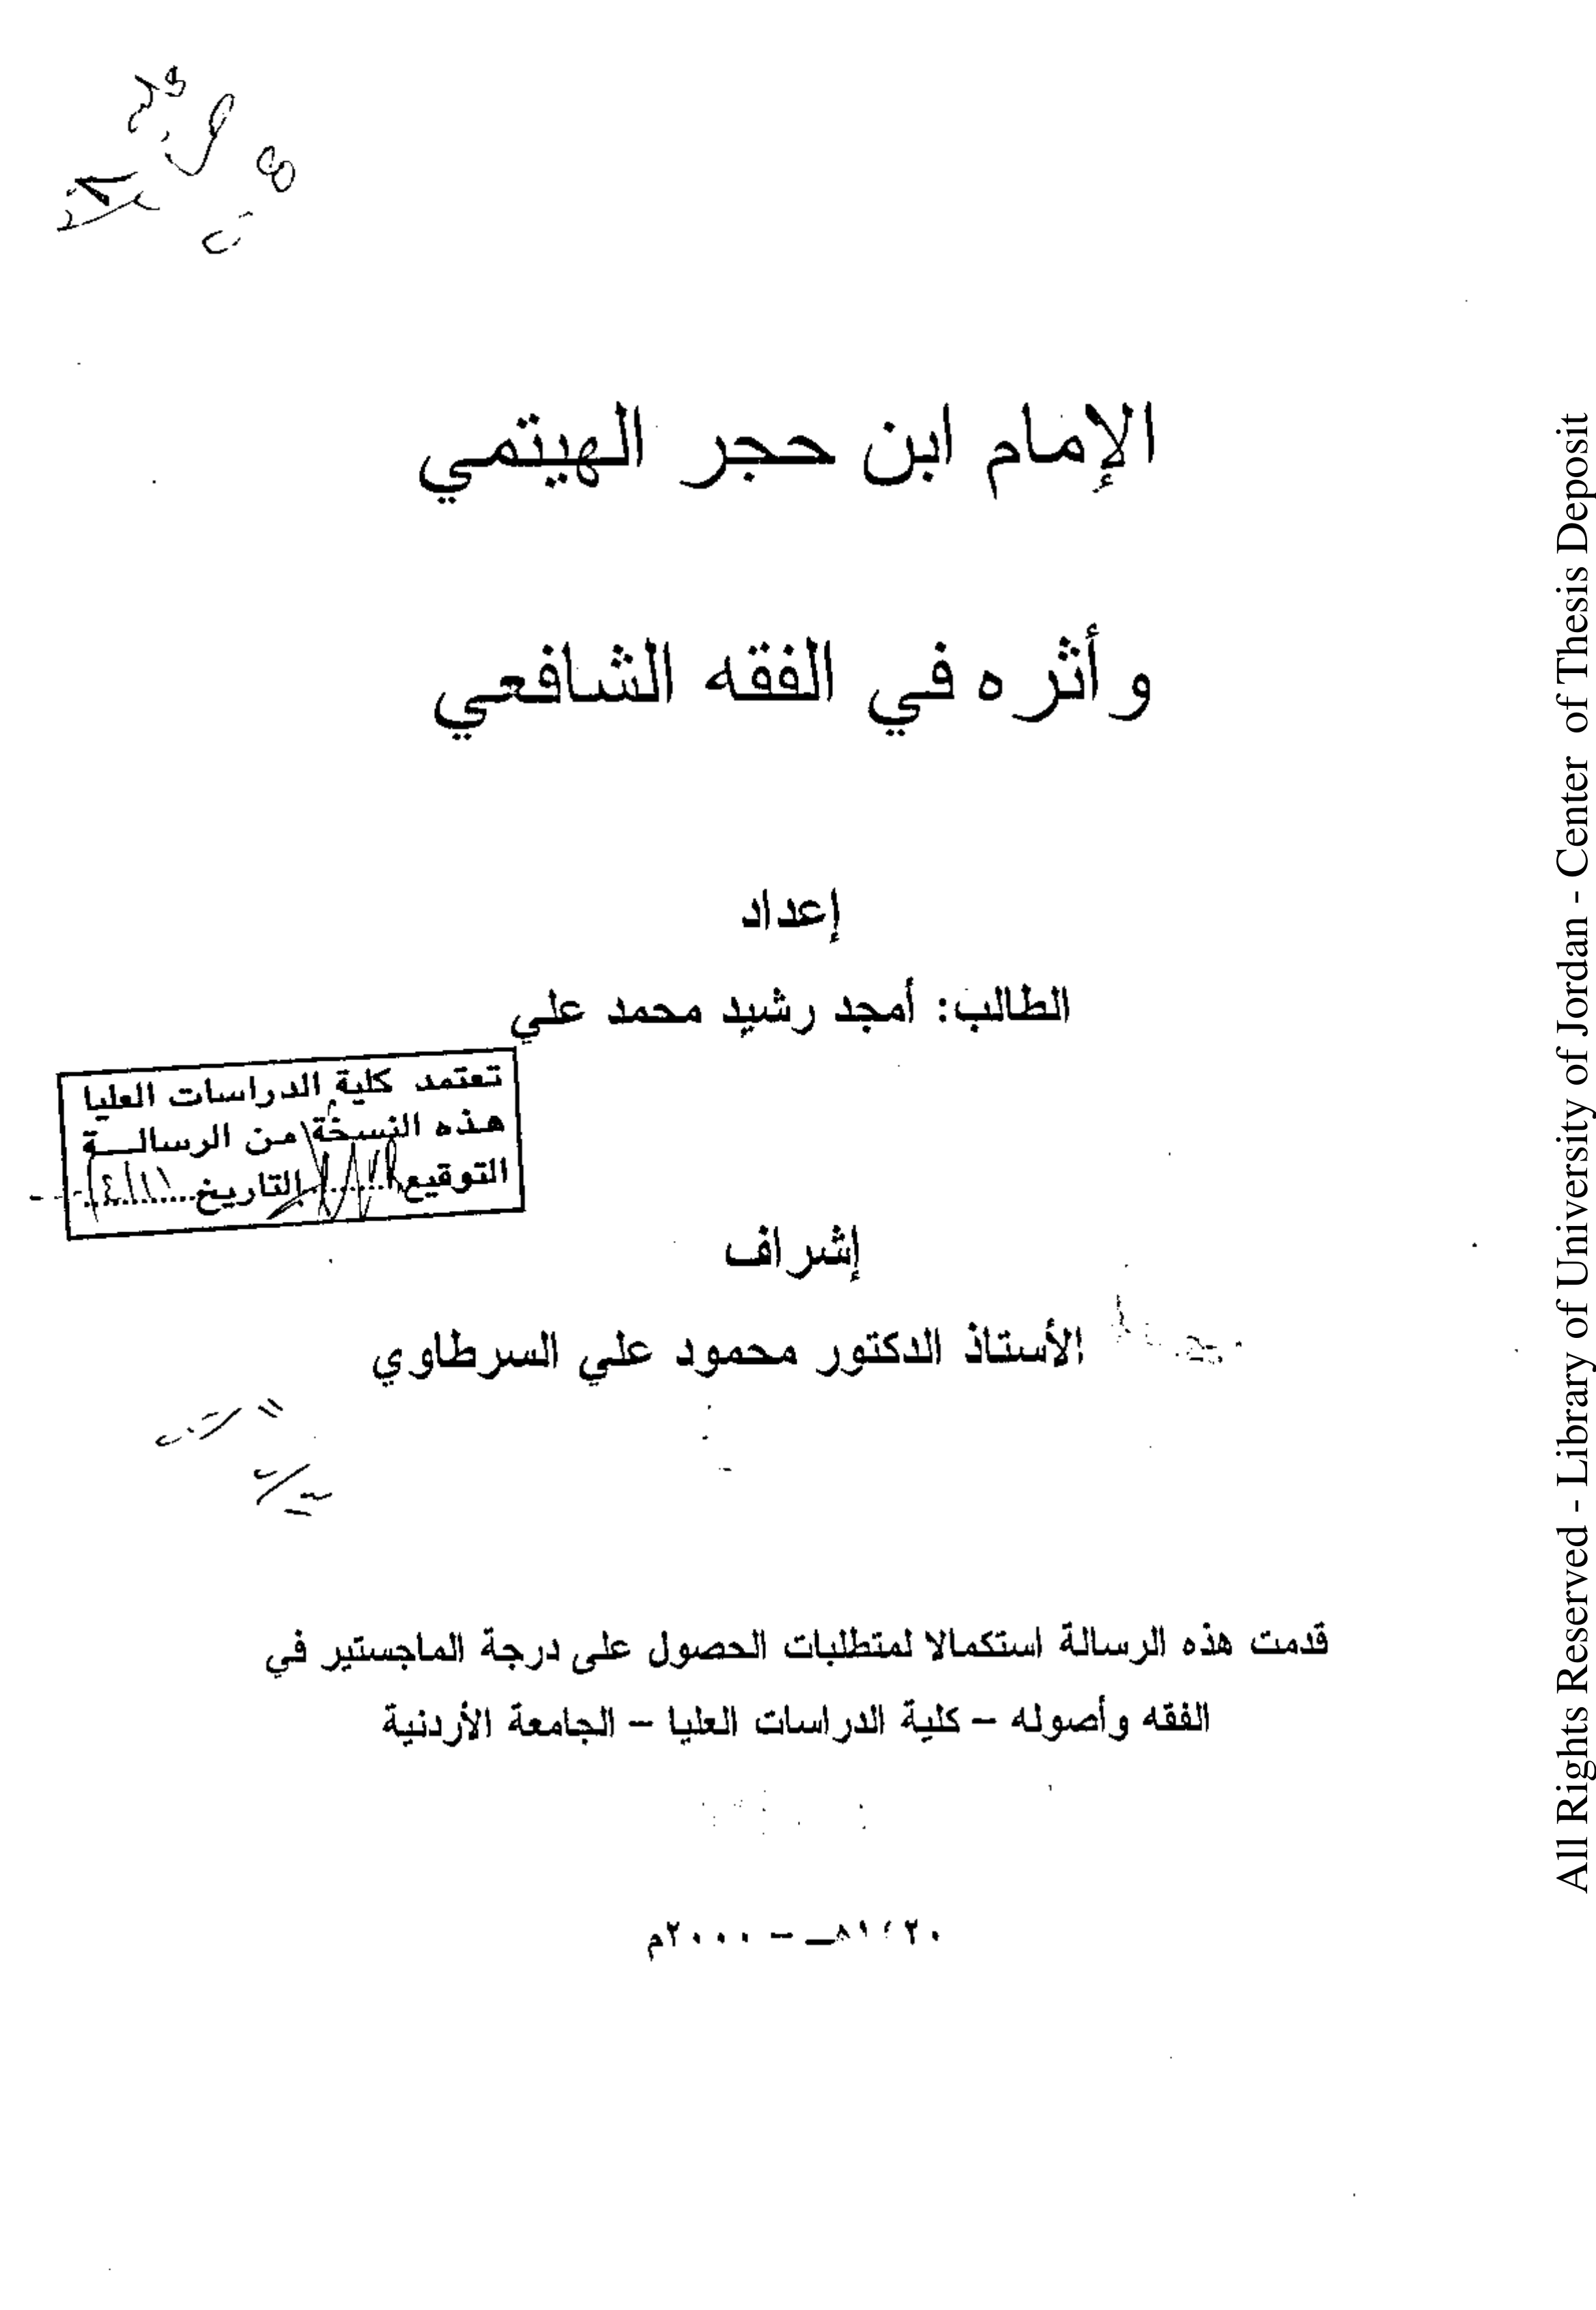 الإمام ابن حجر الهيتمي
وأثره في الفقه الشافعي
إعداد
الطالب: أمجد رشيد محمد علي
تعتمد كلية الدراسات العليا
هذه النسخة من الرسالــة
التوقيع........التاريخ............
إشراف
الأستاذ الدكتور محمود علي السرطاوي
قدمت هذه الرسالة استكمالا لمتطلبات الحصول على درجة الماجستير في
الفقه وأصوله – كلية الدراسات العليا – الجامعة الأردنية
١٤٢٠هـ – ٢٠٠٠م
All Rights Reserved - Library of University of Jordan - Center of Thesis Deposit